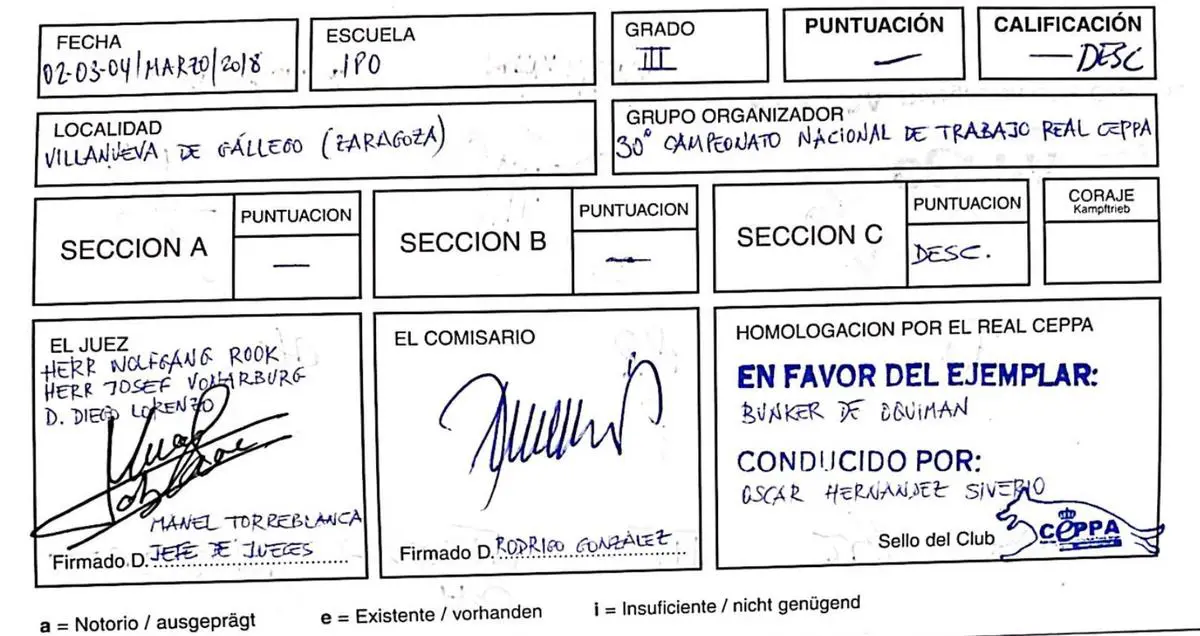 FECHA
02-03-04/MARZO/2018
ESCUELA
IPO
GRADO
III
PUNTUACIÓN
—
CALIFICACIÓN
— DESC
LOCALIDAD
VILLANUEVA DE GÁLLEGO (ZARAGOZA)
GRUPO ORGANIZADOR
30º CAMPEONATO NACIONAL DE TRABAJO REAL CEPPA
SECCION A
PUNTUACION
—
SECCION B
PUNTUACION
—
SECCION C
PUNTUACION
DESC.
CORAJE
Kampftrieb
EL JUEZ
HERR WOLFGANG ROOK
HERR JOSEF VONARBURG
D. DIEGO LORENZO
MANEL TORREBLANCA
Firmado D. JEFE DE JUECES
EL COMISARIO
Firmado D. RODRIGO GONZÁLEZ
HOMOLOGACION POR EL REAL CEPPA
EN FAVOR DEL EJEMPLAR:
BUNKER DE OQUIMAN
CONDUCIDO POR:
OSCAR HERNANDEZ SIVERIO
Sello del Club
CEPPA
a = Notorio / ausgeprägt
e = Existente / vorhanden
i = Insuficiente / nicht genügend